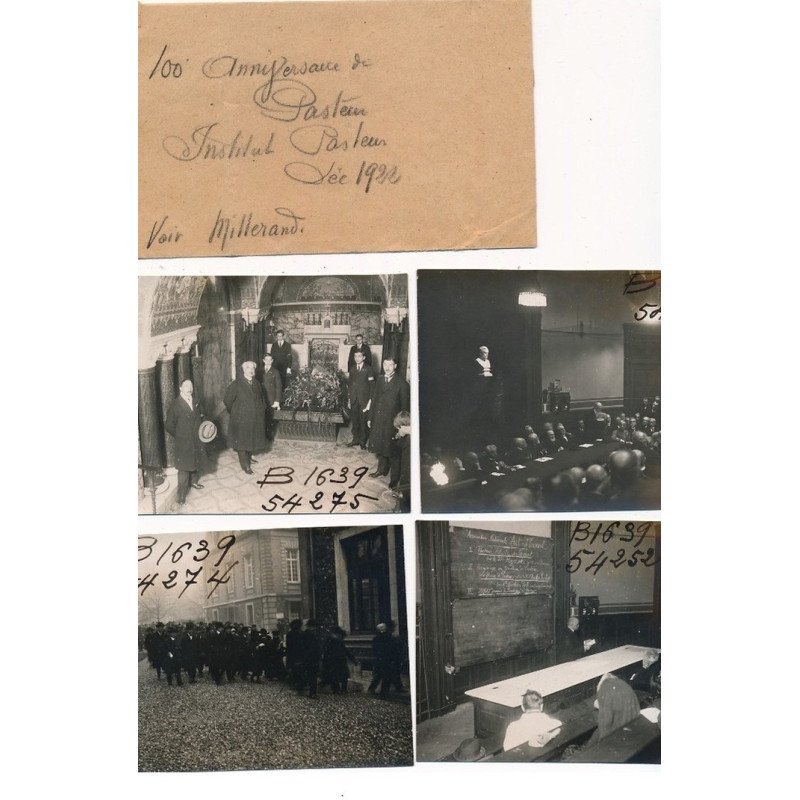 100e Anniversaire de
Pasteur
Institut Pasteur
Déc 1922
Voir Millerand.
B 1639
54275
B
54
B1639
4274
B1639
54252